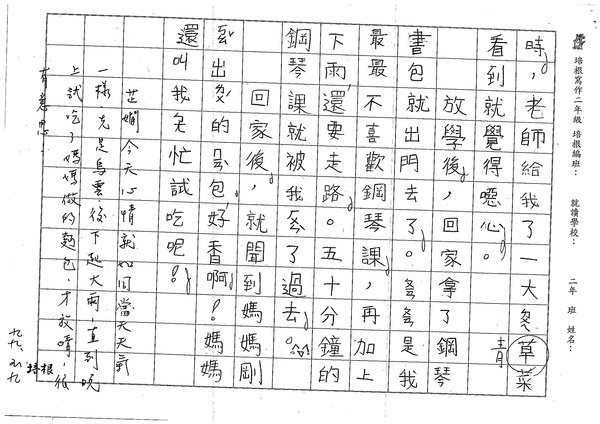 培根寫作二年級 培根編班： 就讀學校： 二年 班 姓名：
時，老師給我了一大草菜
青
看到就覺得噁心。
放學後，回家拿了鋼琴
書包就出門去了。是我
最最不喜歡鋼琴課，再加上
下雨，還要走路。五十分鐘的
鋼琴課就被我了過去。
回家後，就聞到媽媽剛
出的包，好香啊！媽媽
還叫我先忙試吃呢！
今天心情就如同當天天氣
一樣先是烏雲後下起大雨，直到晚
上試吃了媽媽做的麵包，才放晴，很
有意思
九九、五、九 培根